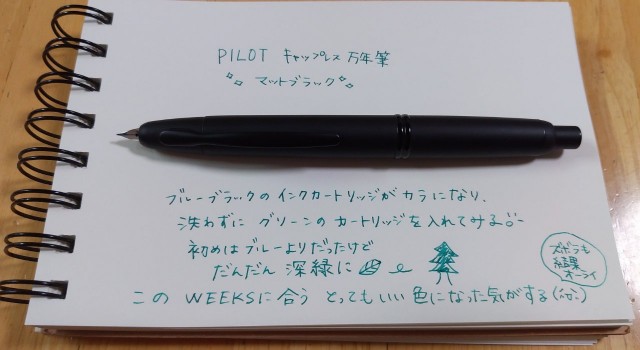 PILOT キャップレス 万年筆
マットブラック
ブルーブラックのインクカートリッジがカラになり、
洗わずに グリーンの カートリッジを入れてみる
初めはブルーよりだったけど
だんだん 深緑に
ズボラも
結果
オーライ
この WEEKSに合う とってもいい色になった気がする